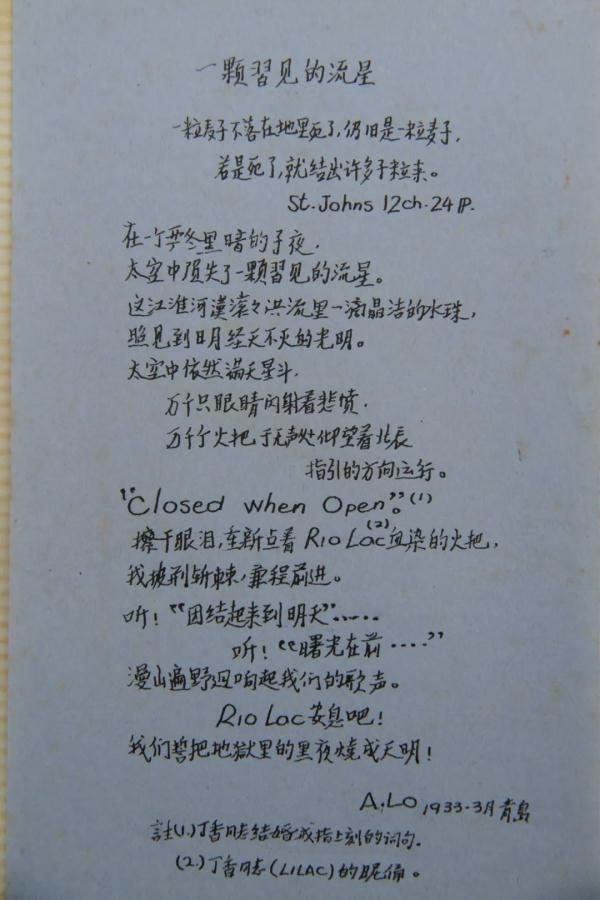 一颗習见的流星
一粒麦子不落在地里死了,仍旧是一粒麦子,
若是死了,就结出许多子粒来。
St. Johns 12ch. 24 P.
在一个严冬里暗的子夜,
太空中殞失了一颗習见的流星。
这江淮河漢滚々洪流里一滴晶洁的水珠,
照见到日月经天不灭的光明。
太空中依然满天星斗,
万千只眼睛闪射着悲愤,
万千个火把于无声处仰望着北辰
指引的方向运行。
"Closed when Open"。(1)
擦干眼泪,重新点着 Rio Lao(2)血染的火把,
我披荆斩棘,兼程前进。
听!"团结起来到明天"……
听!"曙光在前····"
漫山遍野迴响起我们的歌声。
Rio Lao 安息吧!
我们誓把地獄里的黑夜燒成天明!
A. Lo 1933·3月 青島
註(1.)丁香同志结婚戒指上刻的词句.
(2.)丁香同志(LILAC)的昵偁。